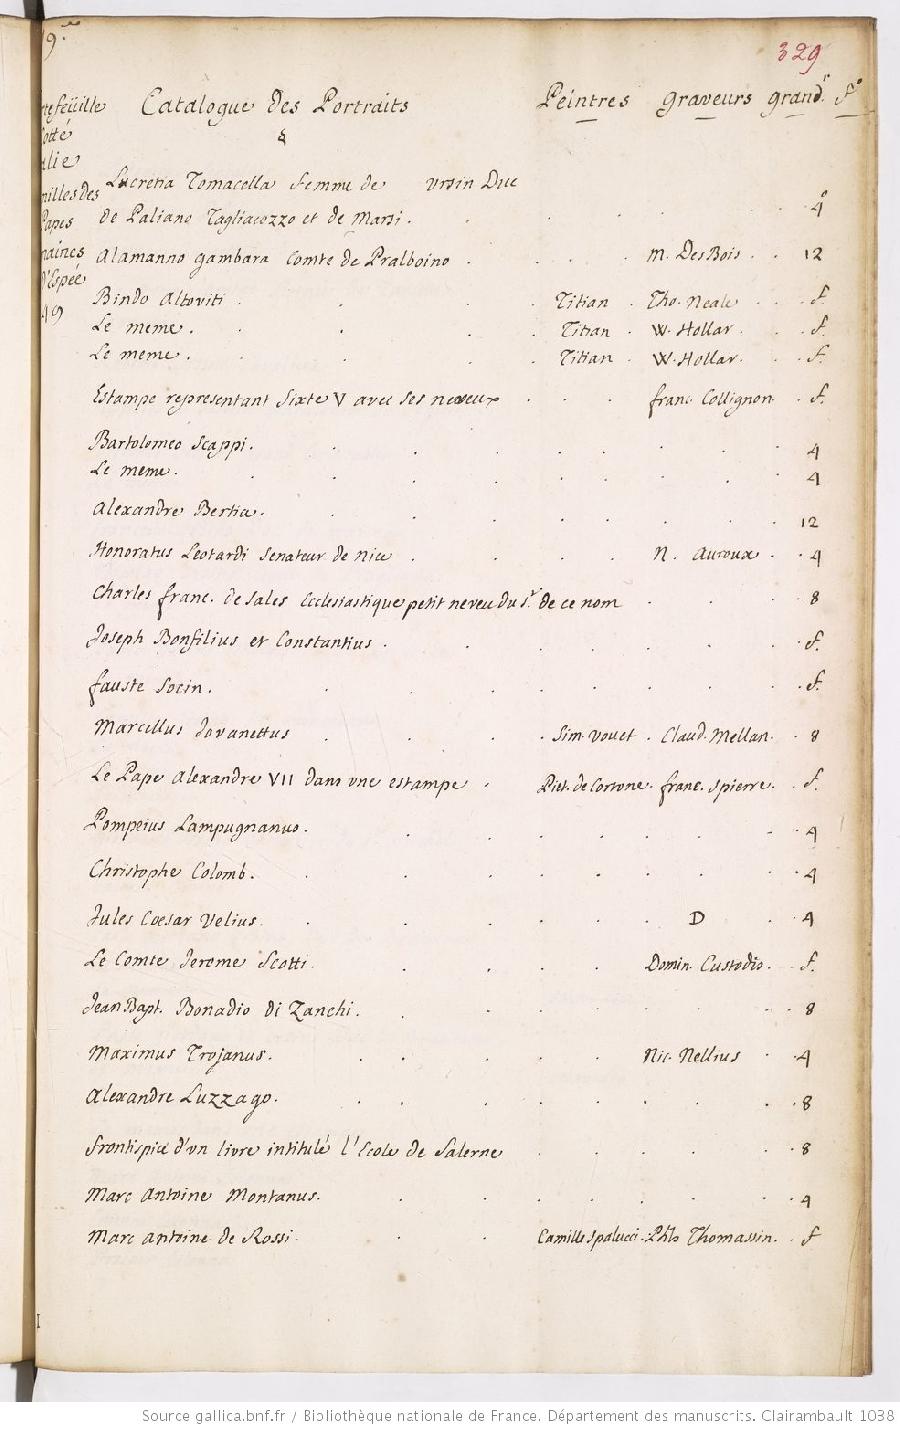 329
Catalogue des Portraits Peintres graveurs grand.r f.o
&
Lucretia Tomacella femme de ursin Duc
de Paliano Tagliacozzo et de Marsi. 4o
Alamanno gambara Comte de Pralboino . M. DesBois . . 12
Bindo Altoviti . Titian . Tho. Neale . . f.
Le meme . Titian . W. Hollar . . f.
Le meme . Titian . W. Hollar . . f.
Estampe representant Sixte V avec ses neveux franc. Collignon . f.
Bartolomeo Scappi . 4
Le meme . 4
Alexandre . 12
Honoratus Leotardi Senateur de Nice . N. Auroux . . 4
Charles franc. de Sales Ecclesiastique petit neveu du St. de ce nom . 8
Joseph Bonfilius et Constantius . f.
fauste Socin . f.
Marcellus Jovanettus . Sim. Vouet . Claud. Mellan . 8
Le Pape Alexandre VII dans une estampe . Piet. de Cortone . franc. Spierre . f.
Pompeius Lampugnanus . 4
Christophe Colomb . 4
Jules Coesar Velius . D . 4
Le Comte Jerome Scotti . Domin. Custodio . f.
Jean Bapt. Bonadio di Zanchi . 8
Maximus Trojanus . Nic. Nellius . . 4
Alexandre Luzzago . 8
frontispice d'un livre intitulé l'Ecole de Salerne . 8
Marc Antoine Montanus . 4
Marc Antoine de Rossi . Camille Spalucci . Phlo Thomassin . f
papes
d'Espée
49
Source gallica.bnf.fr / Bibliothèque nationale de France. Département des manuscrits. Clairambault 1038